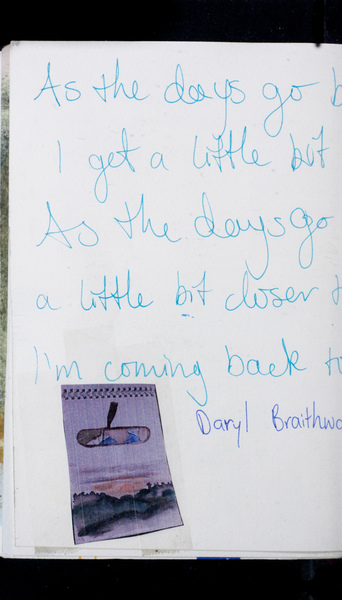 As the days go b
I get a little bit
As the days go
a little bit closer t
I'm coming back to
Daryl Braithwa